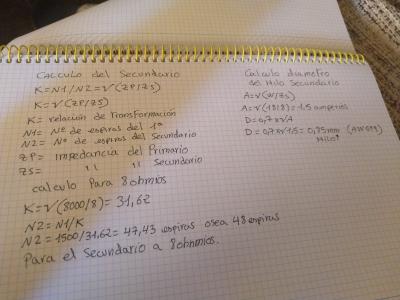 Calculo del Secundario
K=N1/N2=√(ZP/ZS)
K=√(ZP/ZS)
K= relación de Transformación
N1= Nº de espiras del 1ª
N2= Nº de espiras del Secundario
ZP= Impedancia del Primario
ZS= '' '' Secundario
calculo Para 8 ohmios
K=√(8000/8)=31,62
N2=N1/K
N2=1500/31,62=47,43 espiras osea 48 espiras
Para el secundario a 8 ohmios.
Calculo diametro
del Hilo Secundario
A=√(W/ZS)
A=√(18/8)=1.5 amperios
D=0,7x√A
D=0,7x√1.5=0,85mm (AWG19)
Hilo